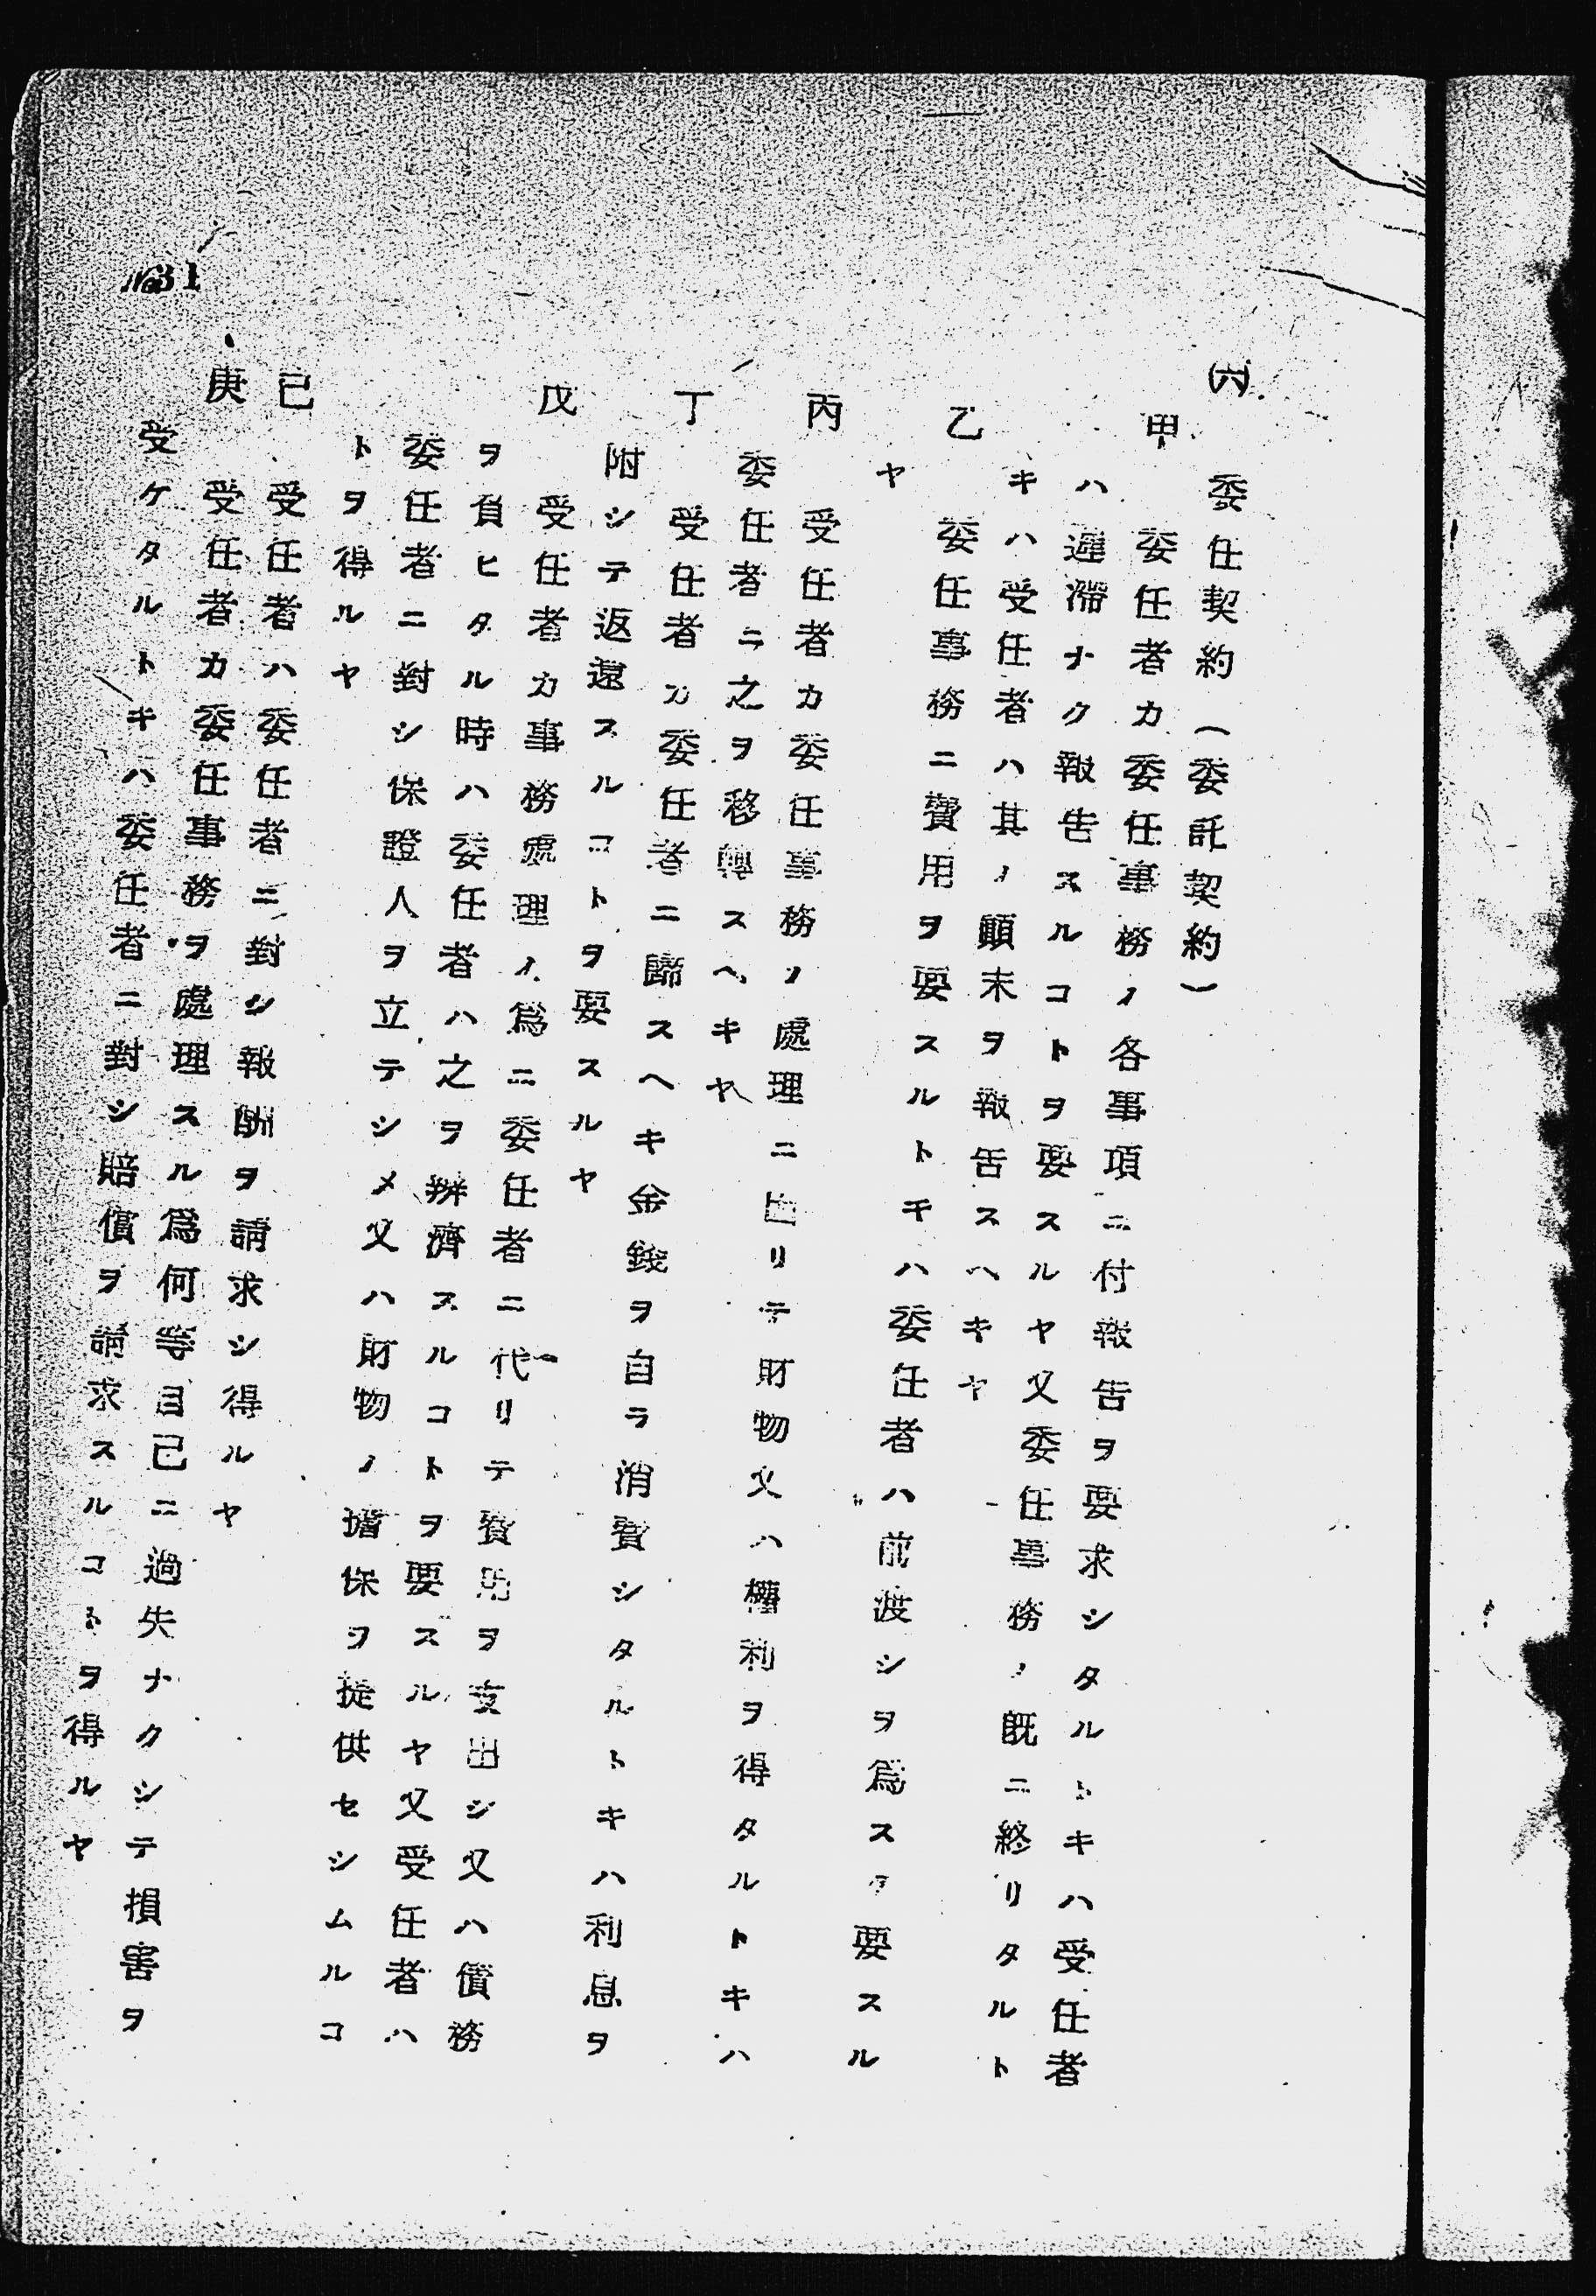 (六) 委任契約(委託契約)
甲 委任者カ委任事務ノ各事項ニ付報告ヲ要求シタルトキハ受任者
ハ遲滯ナク報告スルコトヲ要スルヤ又委任事務ノ既ニ終リタルト
キハ受任者ハ其ノ顚末ヲ報告スヘキヤ
乙 委任事務ニ費用ヲ要スルトキハ委任者ハ前渡シヲ爲スヲ要スル
ヤ
丙 受任者カ委任事務ノ處理ニ因リテ財物又ハ權利ヲ得タルトキハ
委任者ニ之ヲ移轉スヘキヤ
丁 受任者カ委任者ニ歸スヘキ金錢ヲ自ラ消費シタルトキハ利息ヲ
附シテ返還スルコトヲ要スルヤ
戊 受任者カ事務處理ノ爲ニ委任者ニ代リテ費用ヲ支出シ又ハ債務
ヲ負ヒタル時ハ委任者ハ之ヲ辨濟スルコトヲ要スルヤ又受任者ハ
委任者ニ對シ保證人ヲ立テシメ又ハ財物ノ擔保ヲ提供セシムルコ
トヲ得ルヤ
己 受任者ハ委任者ニ對シ報酬ヲ請求シ得ルヤ
庚 受任者カ委任事務ヲ處理スル爲何等自己ニ過失ナクシテ損害ヲ
受ケタルトキハ委任者ニ對シ賠償ヲ請求スルコトヲ得ルヤ
No31